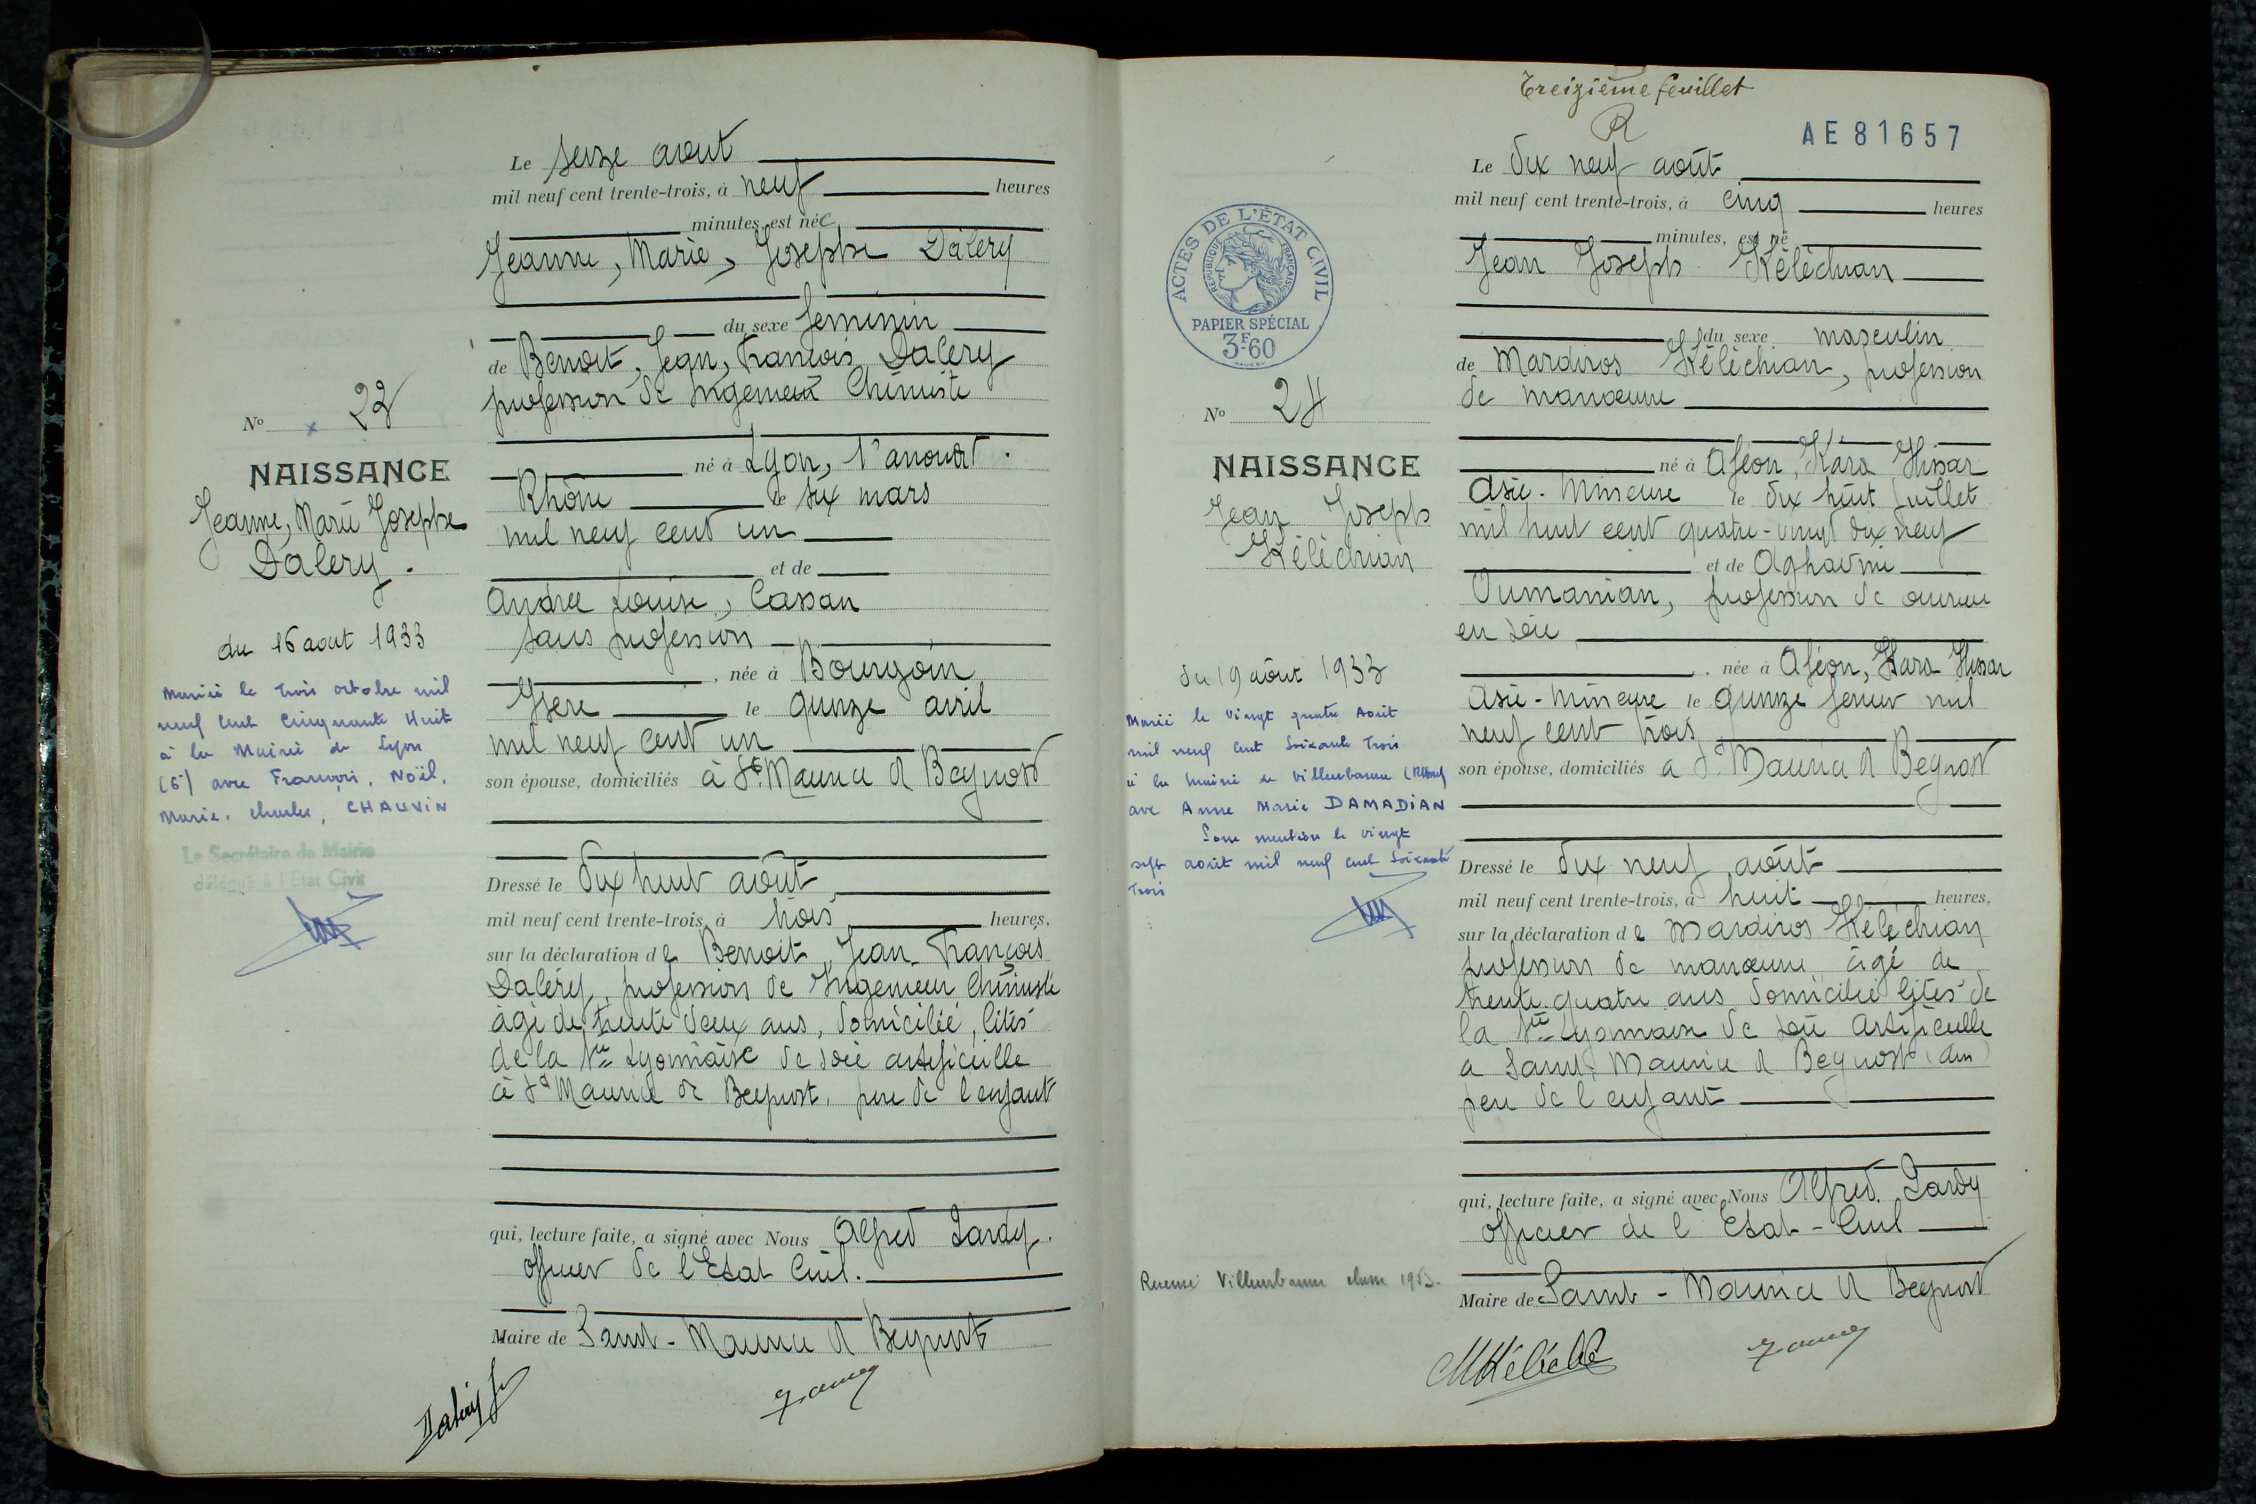 Le seize aout
mil neuf cent trente-trois, à neuf heures
minutes, est née
Jeanne, Marie, Josephe Daléry
du sexe feminin
de Benoit, Jean, François Daléry
profession de Ingenieur Chimiste
né à Lyon, 1er arrondt.
Rhône le six mars
mil neuf cent un
et de
Andrée Louise, Cassan
sans profession
, née à Bourgoin
Isère le quinze avril
mil neuf cent un
son épouse, domiciliés à St Maurice d Beynost
Dressé le dix huit août
mil neuf cent trente-trois, à trois heures,
sur la déclaration de Benoit, Jean, François
Daléry, profession de Ingenieur Chimiste
âgé de trente deux ans, domicilié, cités
de la Sté Lyonnaise de soie artificielle
à St Maurice de Beynost, père de l'enfant
qui, lecture faite, a signé avec Nous Alfred Lardy.
officier de l'Etat Civil.
Maire de Saint-Maurice d Beynost
Daléry
No 23
NAISSANCE
Jeanne, Marie Josephe
Daléry.
du 16 aout 1933
Mariée le trois octobre mil
neuf cent cinquante Huit
à la Mairie de Lyon
(6) avec François, Noël,
Marie, Charles, CHAUVIN
Le Secrétaire de Mairie
délégué à l'Etat Civil
Treizième feuillet
R
AE 81657
Le dix neuf août
mil neuf cent trente-trois, à cinq heures
minutes, est né
Jean Joseph Kéléchian
du sexe masculin
de Mardiros Kéléchian, profession
de manœuvre
né à Aféon, Kara Hissar
Asie-Mineure le dix huit Juillet
mil huit cent quatre-vingt dix neuf
et de Aghavni
Oumanian, profession de ouvrière
en soie
, née à Aféon, Kara Hissar
Asie-Mineure le quinze fevrier mil
neuf cent trois
son épouse, domiciliés a St Maurice d Beynost
Dressé le dix neuf août
mil neuf cent trente-trois, à huit heures,
sur la déclaration de Mardiros Kéléchian
profession de manœuvre âgé de
trente-quatre ans domicilié cités de
la Sté Lyonnaise de soie Artificielle
a Saint Maurice d Beynost (Ain)
père de l'enfant
qui, lecture faite, a signé avec Nous Alfred Lardy
officier de l'Etat-Civil
Maire de Saint-Maurice d Beynost
ACTES DE L'ÉTAT CIVIL
RÉPUBLIQUE FRANÇAISE
PAPIER SPÉCIAL
3F.60
No 24
NAISSANCE
Jean Joseph
Kéléchian
du 19 août 1933
Marié le vingt quatre Août
mil neuf cent soixante trois
à la mairie de Villeurbanne (Rhône)
avec Anne Marie DAMADIAN
Pour mention le vingt
sept août mil neuf cent soixante
trois
Recensé Villeurbanne classe 1953.